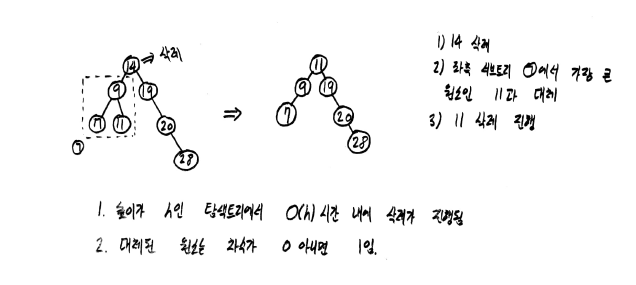 14 ⇒ 삭제
9 19
7 11 20
28
①
⇒
11
9 19
7 20
28
1) 14 삭제
2) 좌측 서브트리 ①에서 가장 큰
원소인 11과 대체
3) 11 삭제 진행
1. 높이가 h인 탐색트리에서 O(h) 시간 내에 삭제가 진행됨
2. 대체된 원소는 차수가 0 아니면 1임.